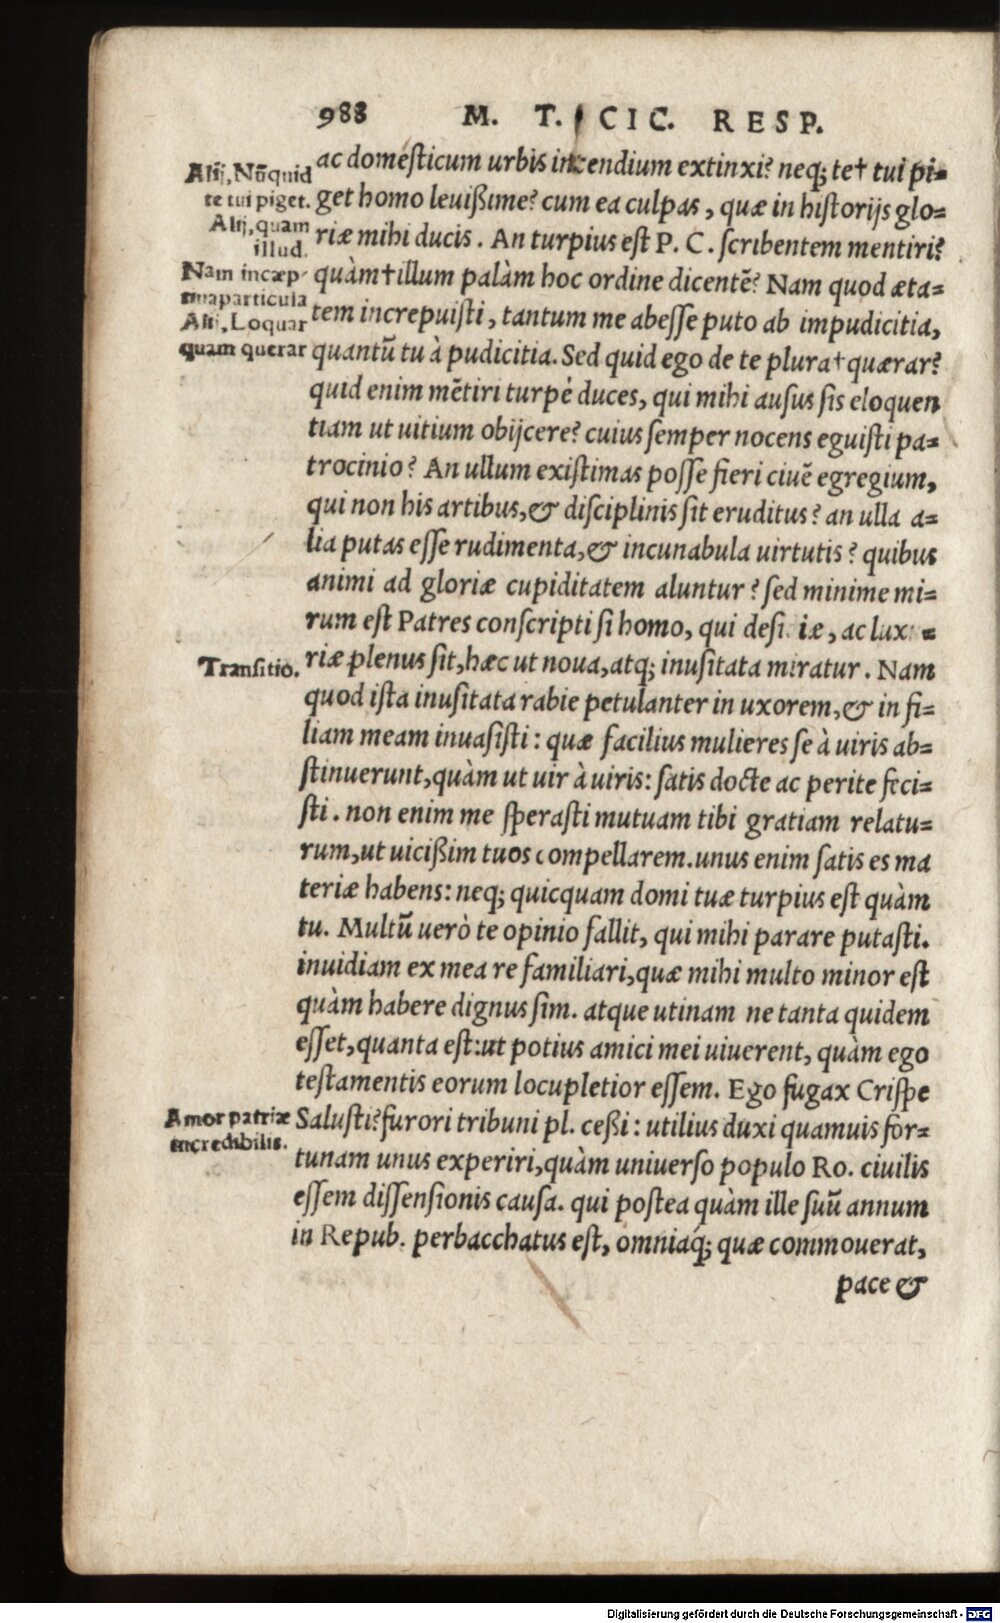 988 M. T. CIC. RESP.
Alij, Nũquid
te tui piget.
Alij, quam
illud.
Nam incæp-
tiua particula
Alij, Loquar
quam querar
ac domesticum urbis incendium extinxi? neq; te† tui pi=
get homo leuißime? cum ea culpas, quæ in historijs glo=
riæ mihi ducis. An turpius est P. C. scribentem mentiri?
quàm† illum palàm hoc ordine dicentẽ? Nam quod æta=
tem increpuisti, tantum me abesse puto ab impudicitia,
quantũ tu à pudicitia. Sed quid ego de te plura† quærar?
quid enim mẽtiri turpè duces, qui mihi ausus sis eloquen
tiam ut uitium obijcere? cuius semper nocens eguisti pa=
trocinio? An ullum existimas posse fieri ciuẽ egregium,
qui non his artibus, & disciplinis sit eruditus? an ulla a=
lia putas esse rudimenta, & incunabula uirtutis? quibus
animi ad gloriæ cupiditatem aluntur? sed minime mi=
rum est Patres conscripti si homo, qui desi iæ, ac lux =
Transitio.
riæ plenus sit, hæc ut noua, atq; inusitata miratur. Nam
quod ista inusitata rabie petulanter in uxorem, & in fi=
liam meam inuasisti: quæ facilius mulieres se à uiris ab=
stinuerunt, quàm ut uir à uiris: satis docte ac perite feci=
sti. non enim me sperasti mutuam tibi gratiam relatu=
rum, ut uicißim tuos compellarem. unus enim satis es ma
teriæ habens: neq; quicquam domi tuæ turpius est quàm
tu. Multũ uerò te opinio fallit, qui mihi parare putasti.
inuidiam ex mea re familiari, quæ mihi multo minor est
quàm habere dignus sim. atque utinam ne tanta quidem
esset, quanta est: ut potius amici mei uiuerent, quàm ego
testamentis eorum locupletior essem. Ego fugax Crispe
Amor patriæ
incredibilis.
Salusti? furori tribuni pl. ceßi: utilius duxi quamuis for=
tunam unus experiri, quàm uniuerso populo Ro. ciuilis
essem dissensionis causa. qui postea quàm ille suũ annum
in Repub. perbacchatus est, omniaq́; quæ commouerat,
pace &
Digitalisierung gefördert durch die Deutsche Forschungsgemeinschaft - DFG